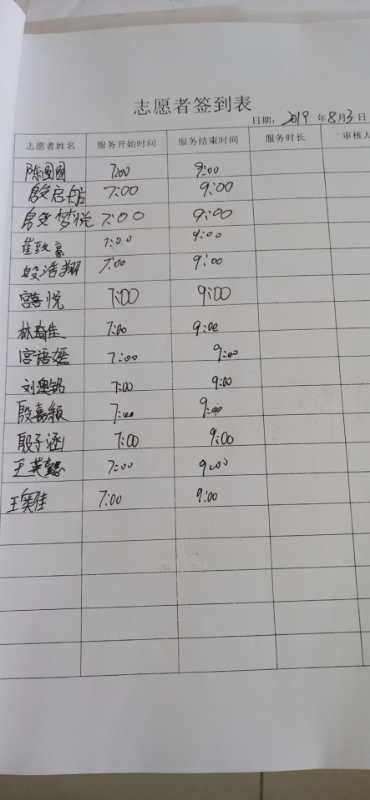 志愿者签到表
日期：2019年8月3日
志愿者姓名 服务开始时间 服务结束时间 服务时长 审核人
陈圆圆 7:00 9:00
殷启航 7:00 9:00
殷梦悦 7:00 9:00
7:00 9:00
殷浩翔 7:00 9:00
宫喜悦 7:00 9:00
7:00 9:00
宫语嫣 7:00 9:00
7:00 9:00
殷嘉颖 7:00 9:00
殷子涵 7:00 9:00
王英懿 7:00 9:00
王奕佳 7:00 9:00